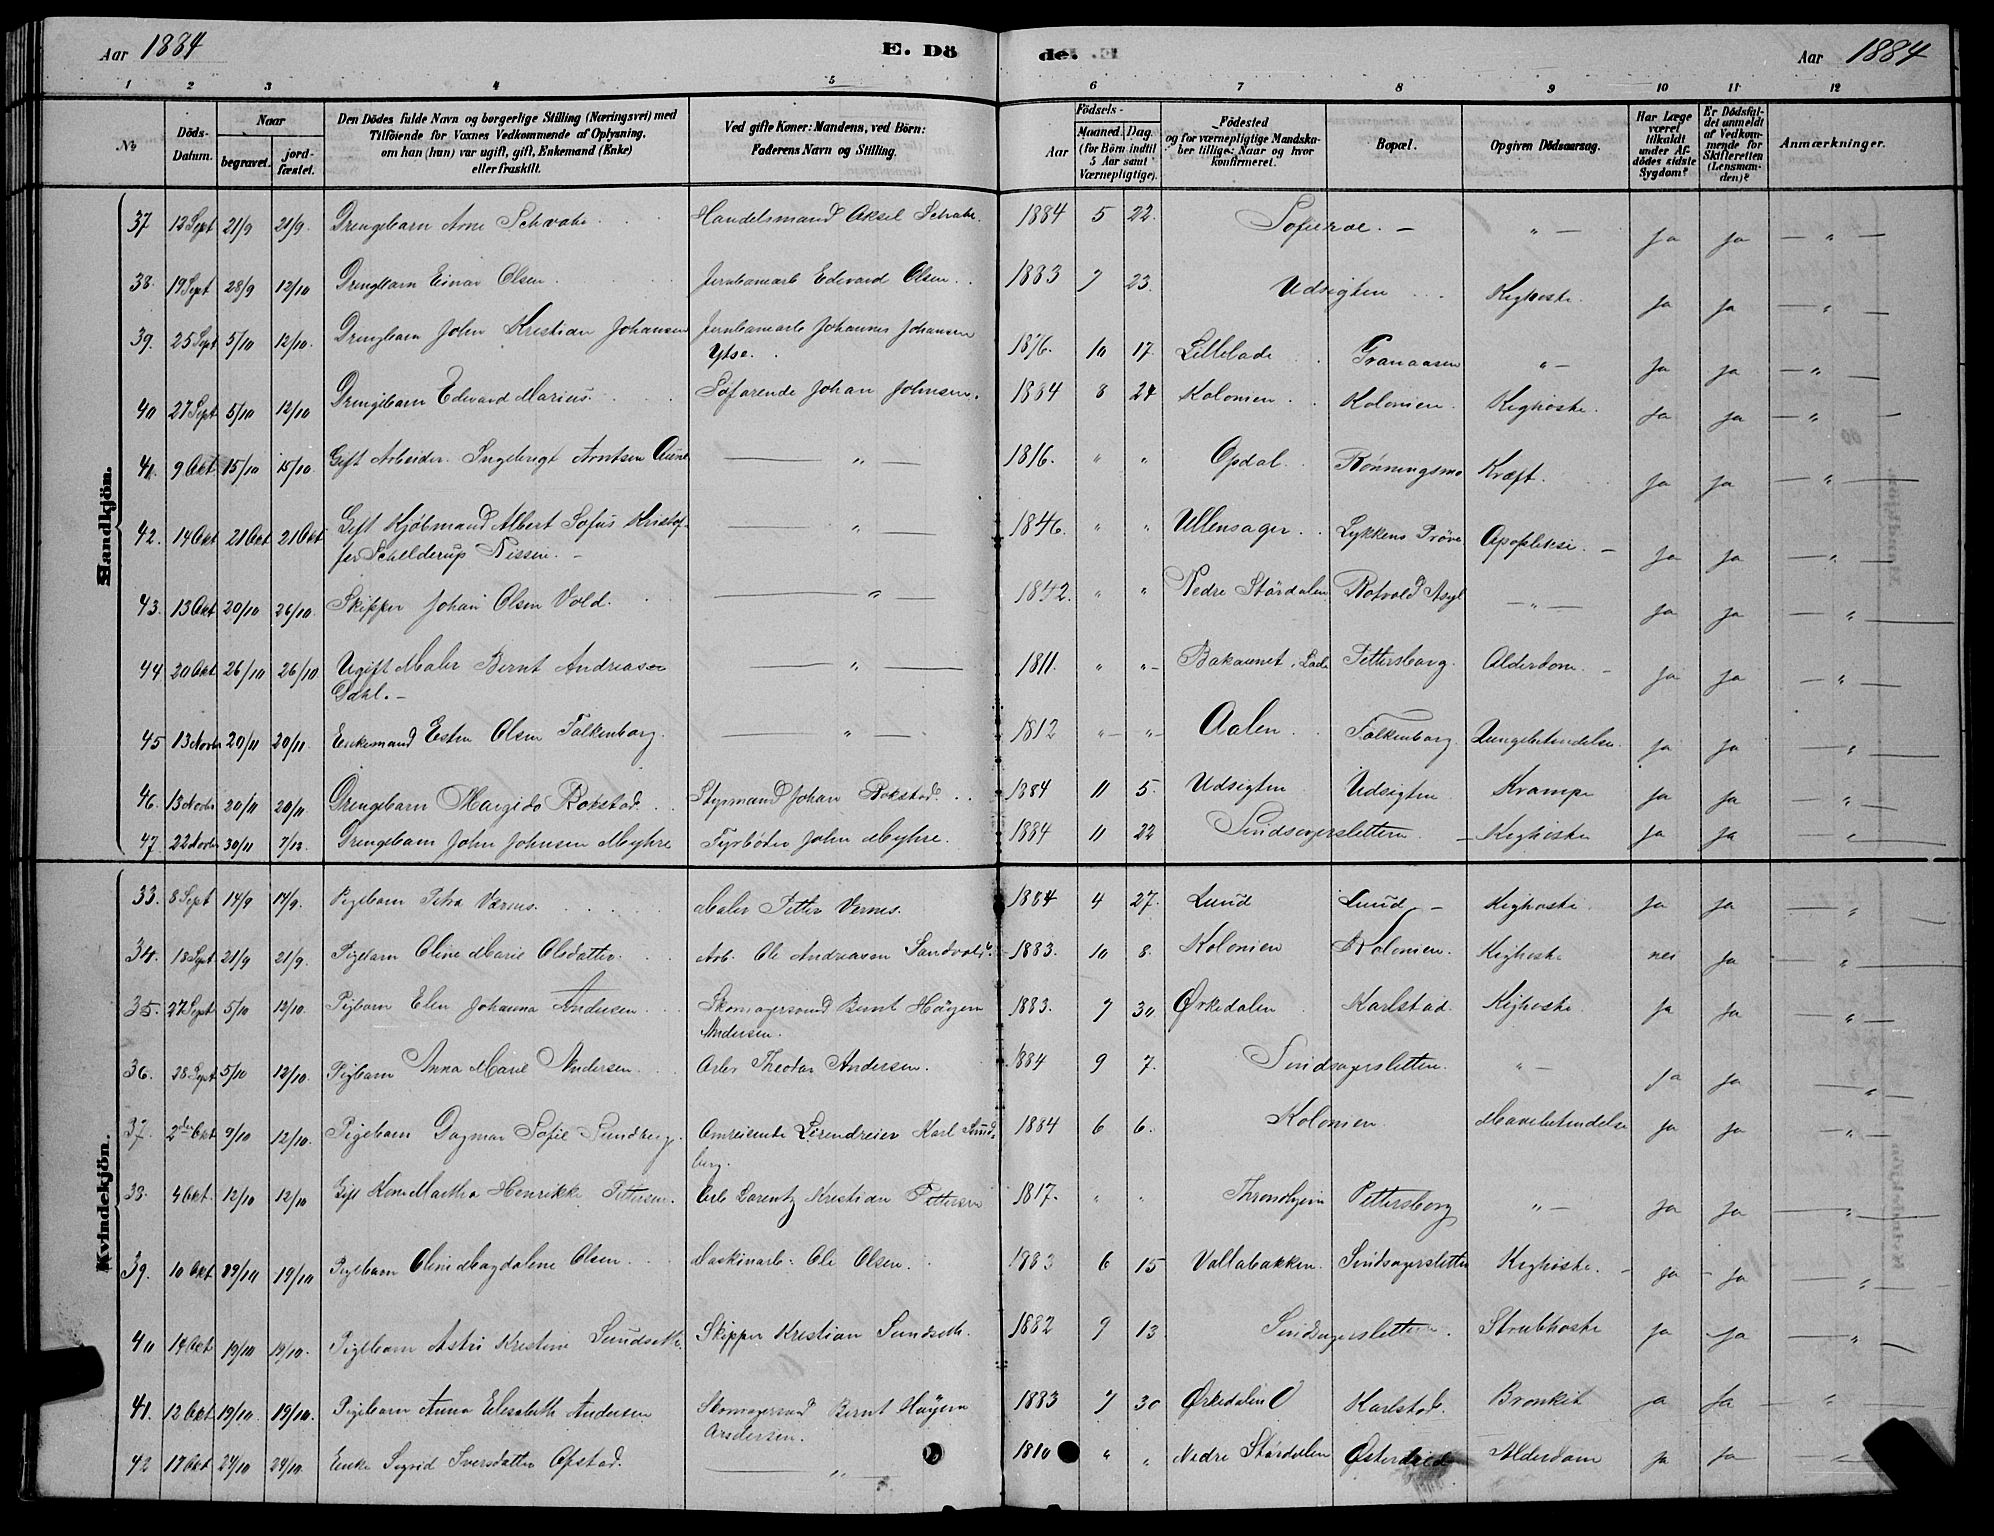 Aar 1884
E. Dö
de.
Aar 1884
1 2 3 4 5 6 7 8 9 10 11 12
No
Döds-Datum.
Naar
begravet.
jord-fæstet.
Den Dödes fulde Navn og borgerlige Stilling (Næringsvei) med
Tilföiende for Voxnes Vedkommende af Oplysning,
om han (hun) var ugift, gift, Enkemand (Enke)
eller fraskilt.
Ved gifte Koner: Mandens, ved Börn:
Faderens Navn og Stilling.
Födsels-
Aar
Maaned. Dag.
(for Börn indtil
5 Aar samt
Værnepligtige).
Födested
og for værnepligtige Mandska-
ber tillige: Naar og hvor
konfirmeret.
Bopæl.
Opgiven Dödsaarsag.
Har Læge
været
tilkaldt
under Af-
dödes sidste
Sygdom?
Er Dödsfal-
det anmeldt
af Vedkom-
mende for
Skifteretten
(Lensman-
den)?
Anmærkninger.
Mandkjön.
37 12 Sept 21/9 21/9. Drengebarn Arne Schwabe Handelsmand Aksel Schwabe. 1884 5 22. Sofieroe. — " — Ja Ja — " —
38. 19 Sept 28/9 12/10 Drengebarn Einar Olsen Jernbanearb Edevard Olsen 1883 7 23. Udsigten Kighoste. Ja Ja — " —
39. 25 Sept 5/10 12/10. Drengebarn John Kristian Johansen Jernbanearb Johannes Johansen
Ytsø. 1876. 10 17. Lillelade Granaasen " — Ja Ja — " —
40 27 Sept 5/10 12/10 Drengebarn Edevard Marius Søfarende Johan Johnsen. 1884 8 24 Kolonien Kolonien. Kighoste. Ja Ja — " —
41. 9 Okt 15/10 15/10 Gift Arbeider Ingebrigt Arntsen Aune — " — 1816. " " Opdal. Rønningsmo Kræft. Ja Ja — " —
42. 14 Okt 21 Okt 21 Okt Gift Kjøbmand Albert Sofus Kristof-
fer Schelderup Nissen. — " — 1846. " " Ullensager Lykkens Prøve Apopleksi. — Ja Ja — " —
43. 13 Okt 20/10 26/10. Skipper Johan Olsen Vold. — " — 1842. " " Nedre Stördalen Rotvold Asyl — " — Ja Ja — " —
44 20 Okt 26/10 26/10 Ugift Maler Bernt Andreasen
Dahl. — " — 1811. " " Bakaunet, Lade Pettersborg. Alderdom. Ja Ja — " —
45 13 Novbr 20/11 20/11. Enkemand Esten Olsen Falkenborg. — " — 1812 " " Aalen Falkenborg. Lungebetændelse. Ja Ja — " —
46. 13 Novbr 20/11 20/11 Drengebarn Rokstad. Styrmand Johan Rokstad. 1884 11 5. Udsigten Udsigten Krampe Ja Ja — " —
47. 22 Novbr 30/11 7/12. Drengebarn John Johnsen Myhre Fyrbøder John Myhre. 1884 11 22 Sindsagersletten. — Kighoste Ja Ja — " —
Kvindekjön.
33. 8 Sept 14/9 14/9. Pigebarn Petra Værnes. Maler Petter Vernes. 1884 4 27. Lund Lund — Kighoste. Ja Ja — " —
34. 18 Sept 21/9 21/9. Pigebarn Oline Marie Olsdatter. Arb. Ole Andreasen Sandvold. 1883. 10 8. Kolonien Kolonien. Kighoste nei Ja — " —
35. 27 Sept 5/10 12/10. Pigebarn Elen Johanna Andersen Skomagersvend Bernt Høgem
Andersen. 1883. 7 30 Ørkedalen Karlstad. Kighoste. Ja Ja — " —
36. 28 Sept 5/10 12/10. Pigebarn Anna Marie Andersen. Arb. Theodor Andersen. 1884 9 7. Sindsagersletten. " — Ja Ja — " —
37. 2den Okt 9/10 12/10. Pigebarn Dagmar Sofie Sundberg. Omreisende Lirendreier Karl Sund-
berg. 1884 6 6. Kolonien. Mavebetændelse Ja Ja — " —
38. 4 Okt. 12/10 12/10 Gift Kone Martha Henrikke Pettersen. Arb Lorentz Kristian Pettersen 1817. " " Throndhjem Pettersborg " — Ja Ja — " —
39. 10 Okt 19/10 19/10 Pigebarn Oline Magdalene Olsen Maskinarb. Ole Olsen. 1883 6 15 Vollabakken. Sindsagersletten Kighoste. — Ja — Ja — " —
40 14 Okt 19/10 19/10. Pigebarn Astri Kristine Sundseth. Skipper Kristian Sundseth. 1882 9 13 Sindsagersletten. Strubhoste Ja Ja — " —
41. 12 Okt 19/10. 19/10. Pigebarn Anna Elisabeth Andersen Skomagersvend Bernt Høgem
Andersen. 1883 7 30 Ørkedalen Karlstad. Bronkit Ja Ja — " —
42 17 Okt 24/10 24/10. Enke Sigrid Iversdatter Opstad. — " — 1810 " " Nedre Stördalen Østerlid Alderdom Ja Ja — " —